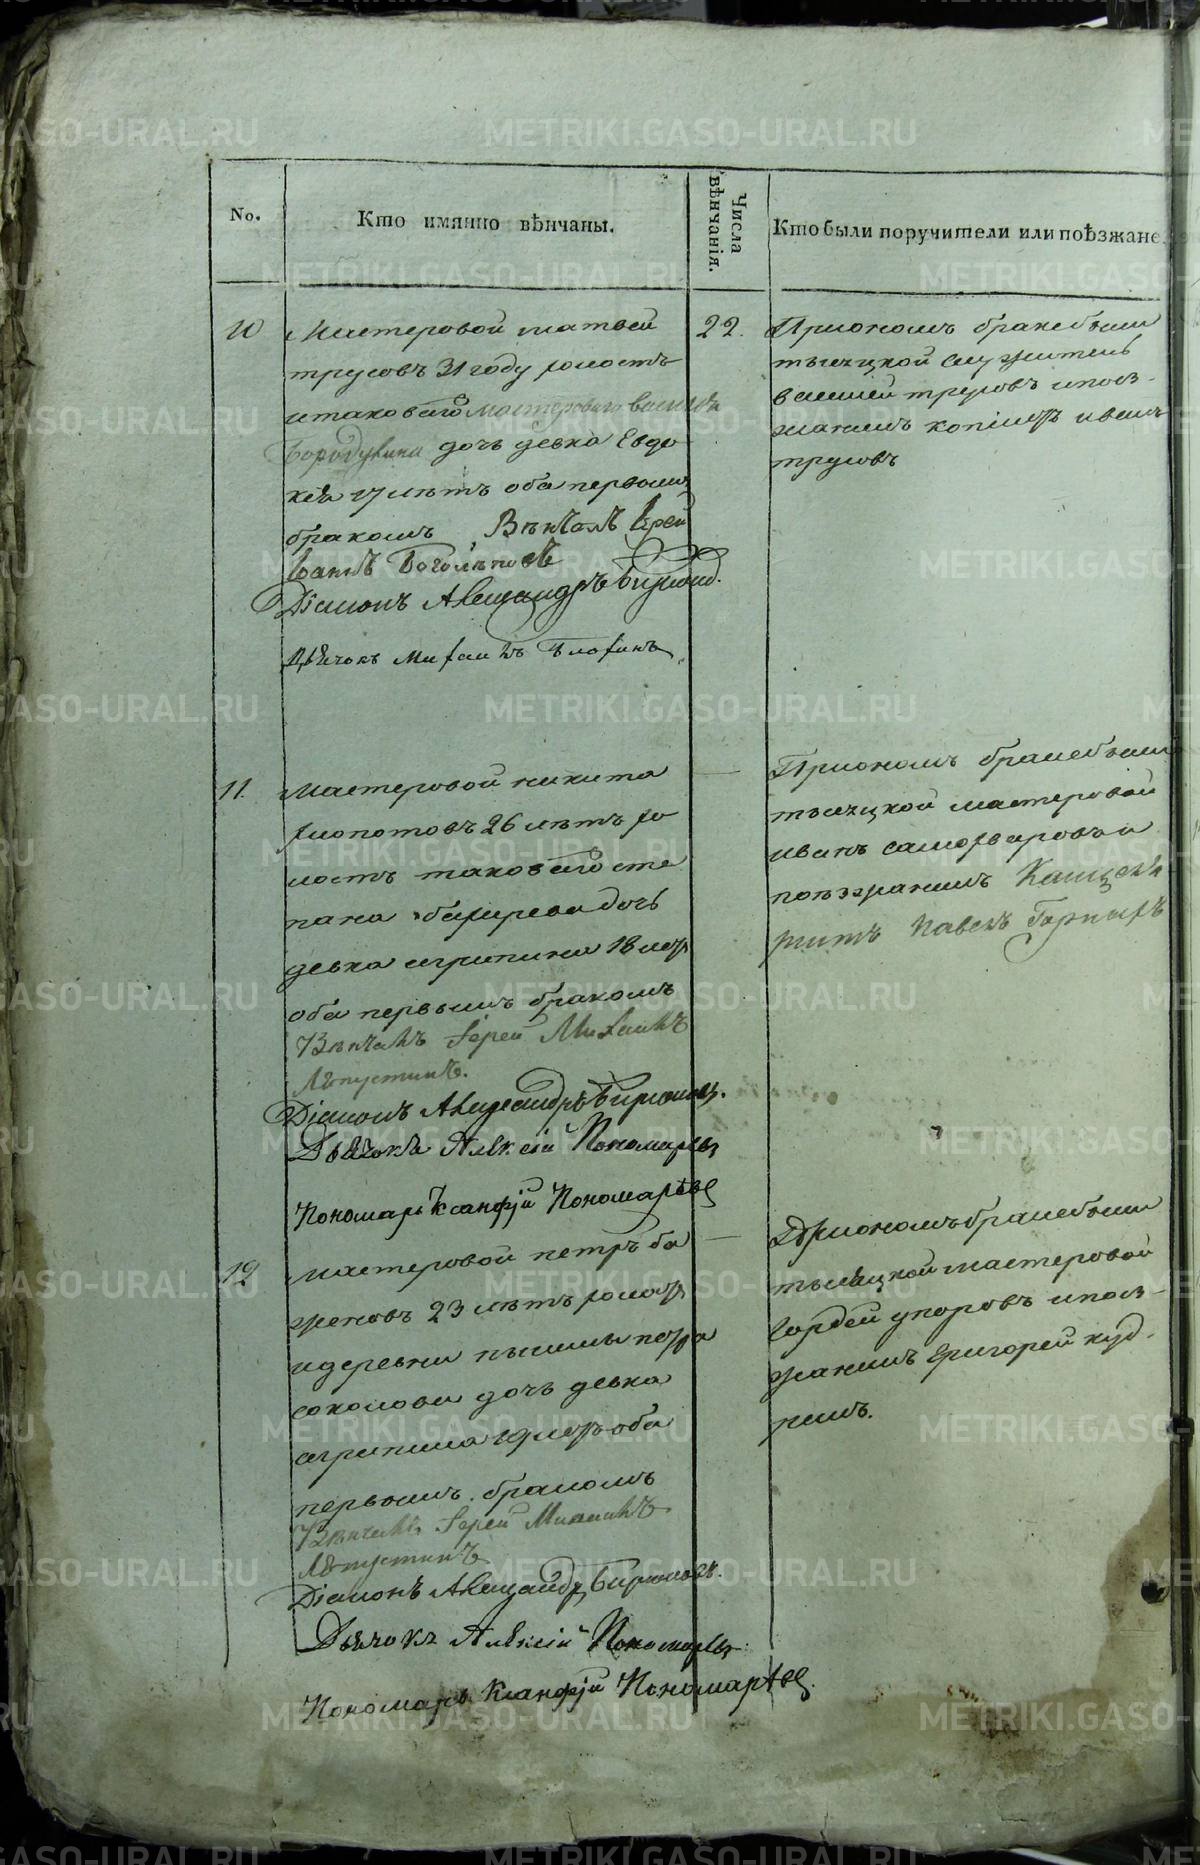 No.
Кто имянно вѣнчаны.
Числа вѣнчанія.
Кто были поручители или поѣзжане
10
Мастеровой матвей
трусовъ 31 году холостъ
итаковаго мастероваго василья
Бородулина дочь девка Евдо
кѣя 17 лѣтъ оба первымъ
бракомъ Вѣнчалъ Іерей
Іоаннъ
Діаконъ Александръ Бирюков.
Дьячокъ Михаилъ
22.
При ономъ браке были
тысяцкой служитель
василей трусовъ ипоез-
жанинъ копіистъ иванъ
трусовъ
11.
Мастеровой никита
хлопотовъ 26 лѣтъ хо
лостъ таковаго сте
пана дочь
девка агрипина 18 лѣтъ
оба первымъ бракомъ
Вѣнчалъ Іерей Михаилъ
Діаконъ Александръ Бирюковъ.
Дьячокъ Алексій Пономаревъ
Пономарь Ксанфій Пономаревъ
При ономъ браке были
тысяцкой мастеровой
иванъ
поѣзжанинъ Канцеля
ристъ Павелъ Горныхъ
12
мастеровой петръ ба
женовъ 23 лѣтъ холостъ
идеревни пышмы петра
соколова дочь девка
агрипина 19 лѣтъ оба
первымъ бракомъ
Вѣнчалъ Іерей Михаилъ
Діаконъ Александръ Бирюковъ.
Дьячокъ Алексій Пономаревъ
Пономарь Ксанфій Пономаревъ
При ономъ браке были
тысяцкой мастеровой
гордей упоровъ ипоез-
жанинъ Григорей куд-
METRIKI.GASO-URAL.RU